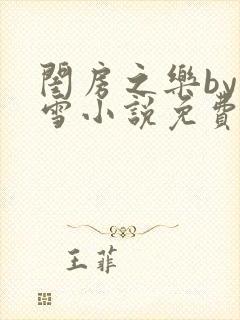 閨房之樂by
雪小說免費
王菲